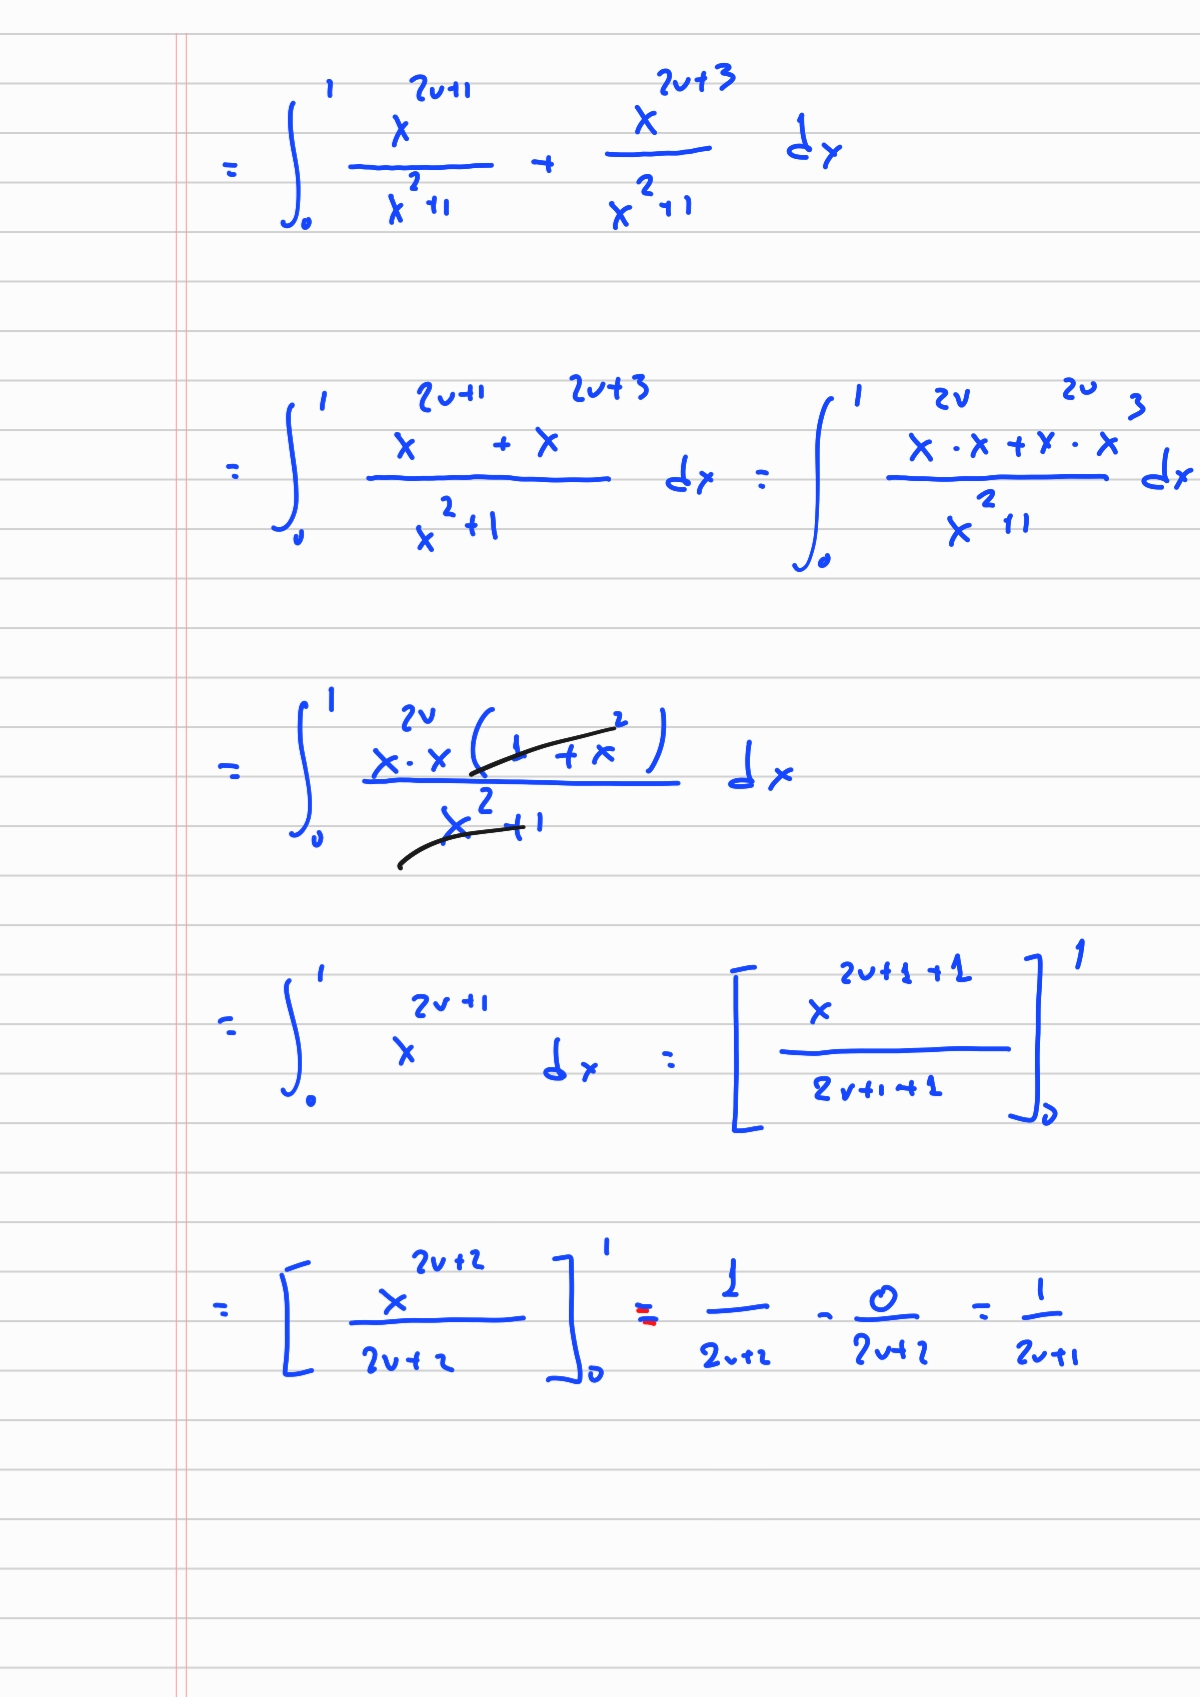 = ∫₀¹ x^{2v+1}/(x²+1) + x^{2v+3}/(x²+1) dx
= ∫₀¹ (x^{2v+1} + x^{2v+3})/(x²+1) dx = ∫₀¹ (x^{2v}·x + x^{2v}·x³)/(x²+1) dx
= ∫₀¹ x^{2v}·x(1 + x²)/(x²+1) dx
= ∫₀¹ x^{2v+1} dx = [x^{2v+1+1}/(2v+1+1)]₀¹
= [x^{2v+2}/(2v+2)]₀¹ = 1/(2v+2) - 0/(2v+2) = 1/(2v+1)